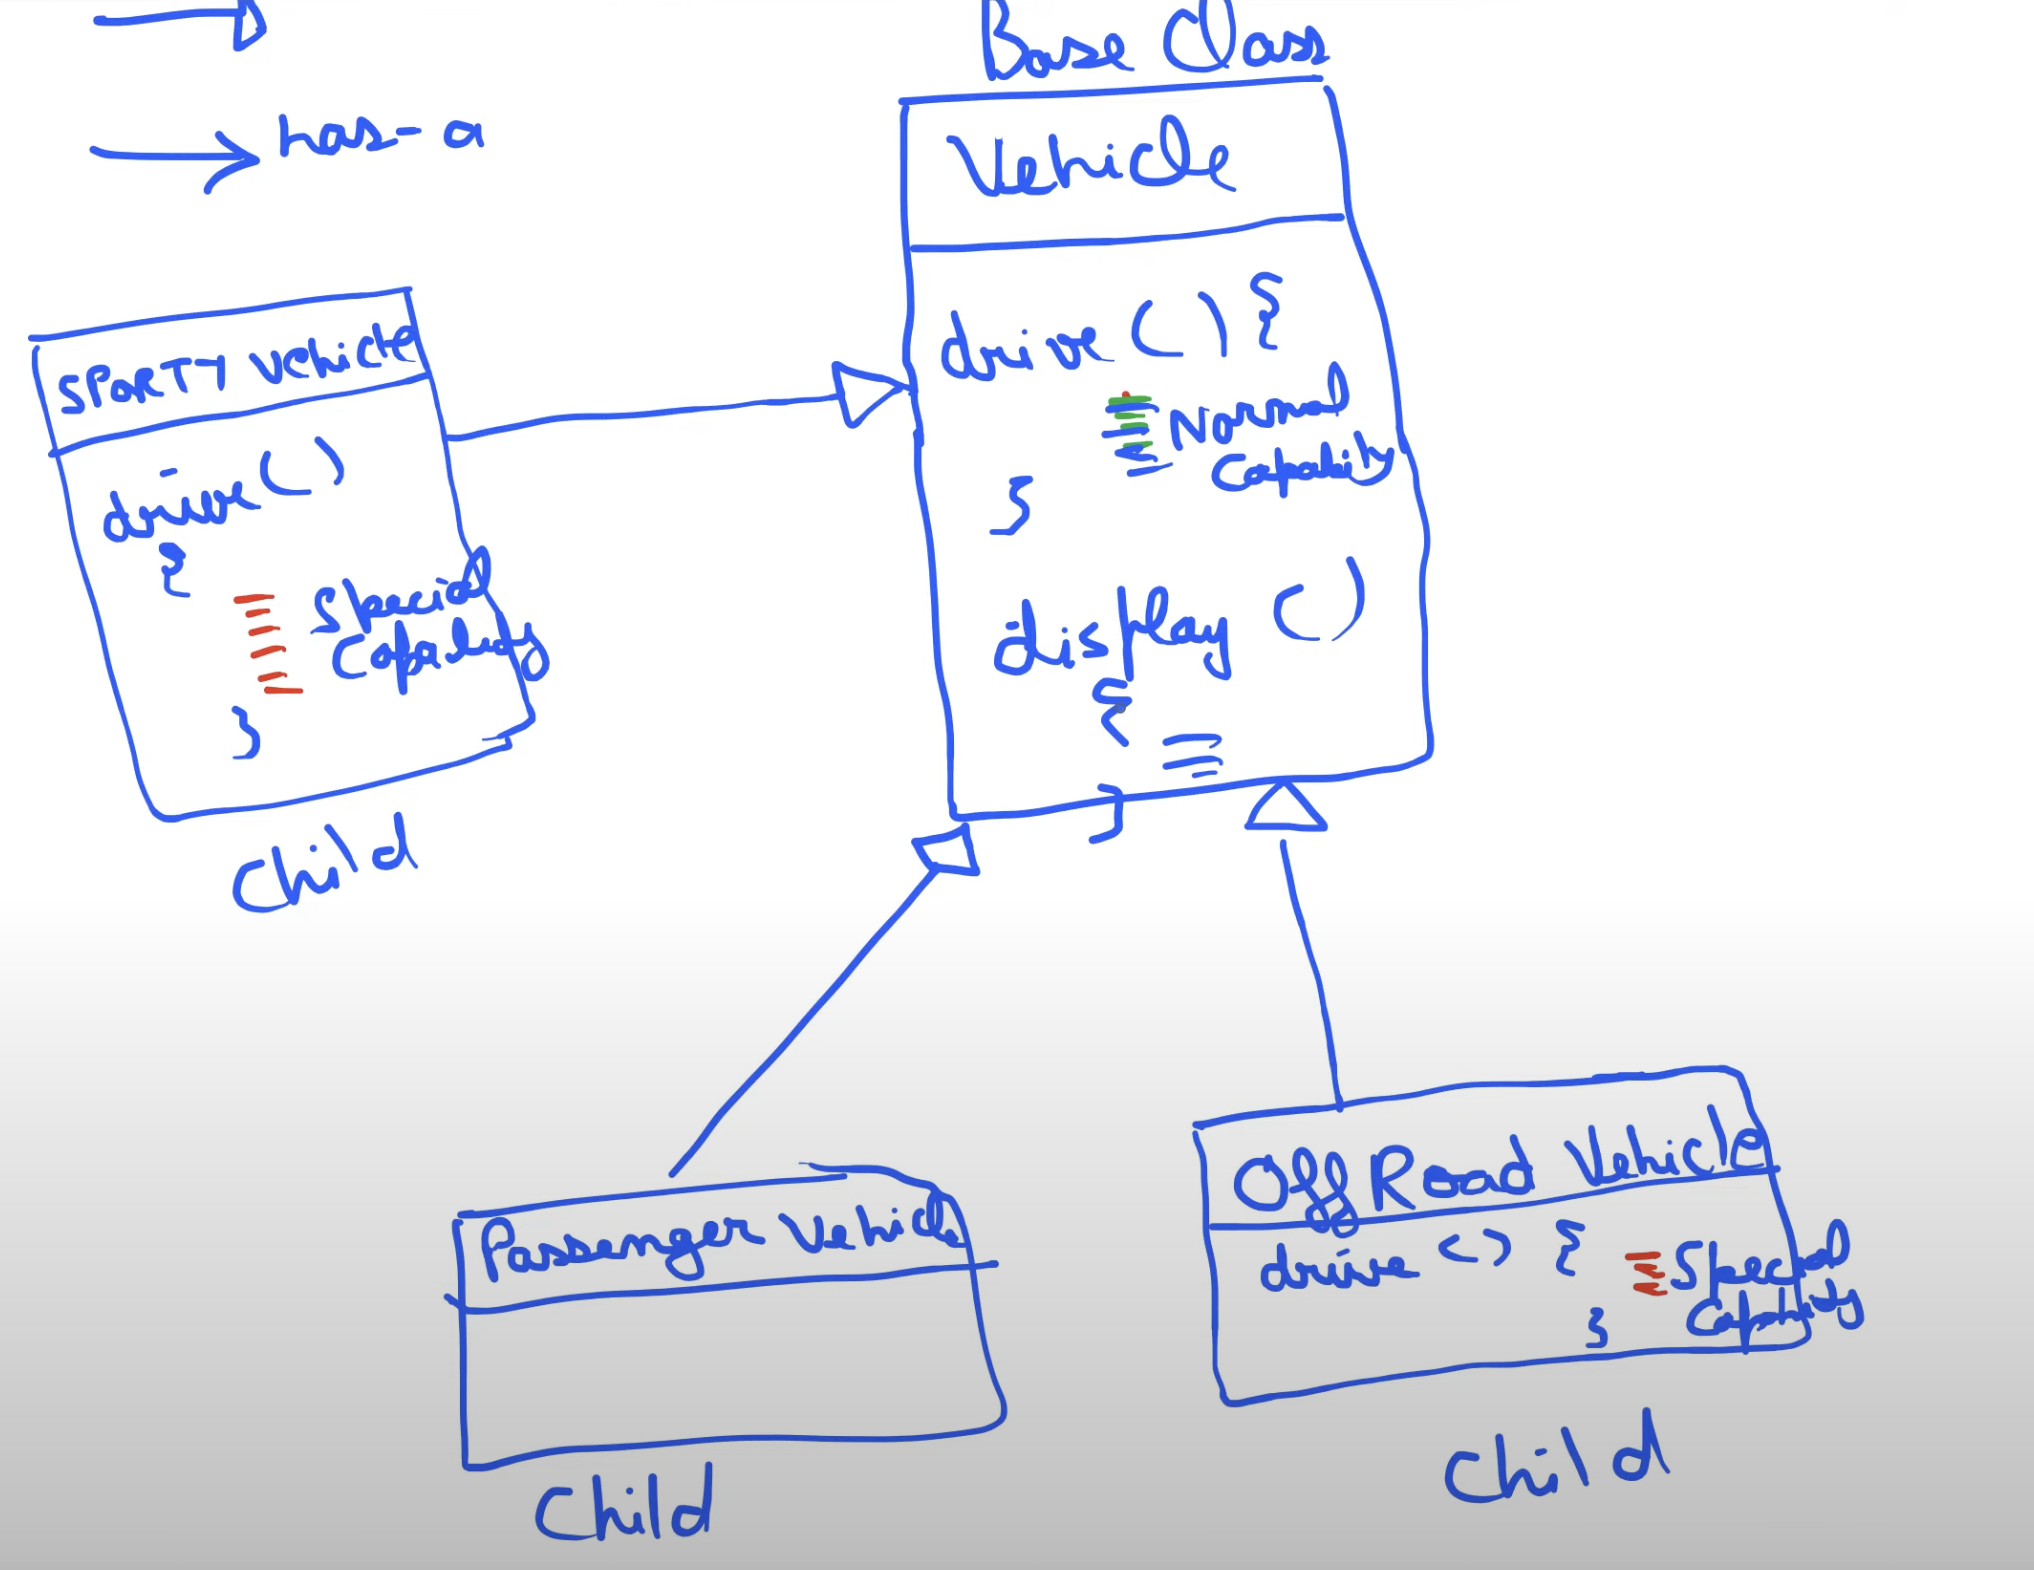 Base Class
has-a
Vehicle
drive () {
Normal
Capability
}
display ()
{
}
SPORTY Vehicle
drive ()
{
Special
Capability
}
Child
Passenger Vehicle
Child
Off Road Vehicle
drive () {
Special
Capability
}
Child